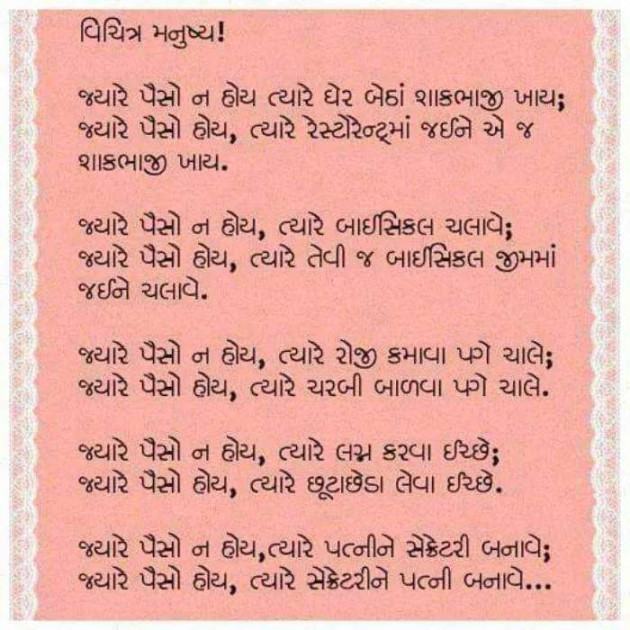 વિચિત્ર મનુષ્ય!
જ્યારે પૈસો ન હોય ત્યારે ઘેર બેઠાં શાકભાજી ખાય;
જ્યારે પૈસો હોય, ત્યારે રેસ્ટોરેન્ટ્માં જઈને એ જ
શાકભાજી ખાય.
જ્યારે પૈસો ન હોય, ત્યારે બાઈસિકલ ચલાવે;
જ્યારે પૈસો હોય, ત્યારે તેવી જ બાઈસિકલ જીમમાં
જઈને ચલાવે.
જ્યારે પૈસો ન હોય, ત્યારે રોજી કમાવા પગે ચાલે;
જ્યારે પૈસો હોય, ત્યારે ચરબી બાળવા પગે ચાલે.
જ્યારે પૈસો ન હોય, ત્યારે લગ્ન કરવા ઈચ્છે;
જ્યારે પૈસો હોય, ત્યારે છૂટાછેડા લેવા ઈચ્છે.
જ્યારે પૈસો ન હોય,ત્યારે પત્નીને સેક્રેટરી બનાવે;
જ્યારે પૈસો હોય, ત્યારે સેક્રેટરીને પત્ની બનાવે...